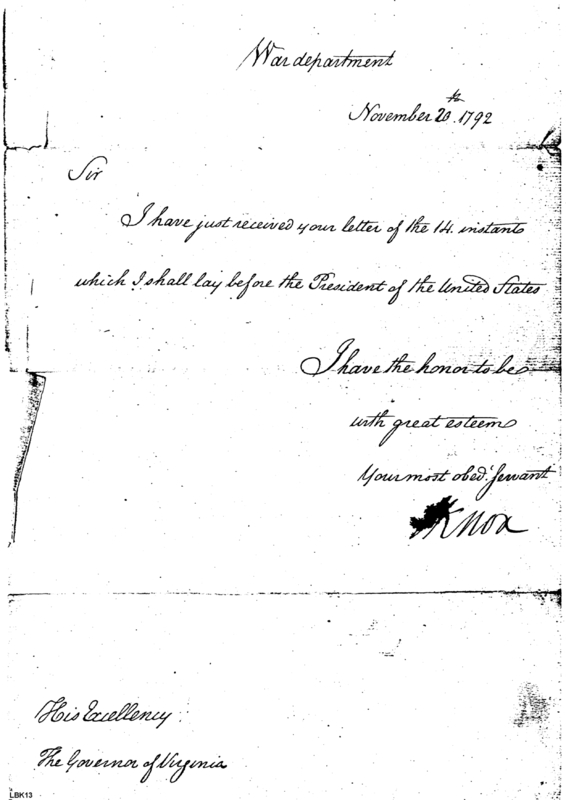 War department
November 20th. 1792
Sir
I have just received your letter of the 14. instant
which I shall lay before the President of the United States
I have the honor to be
with great esteem
Your most obedt. servant
HKnox
His Excellency
The Governor of Virginia
LBK13